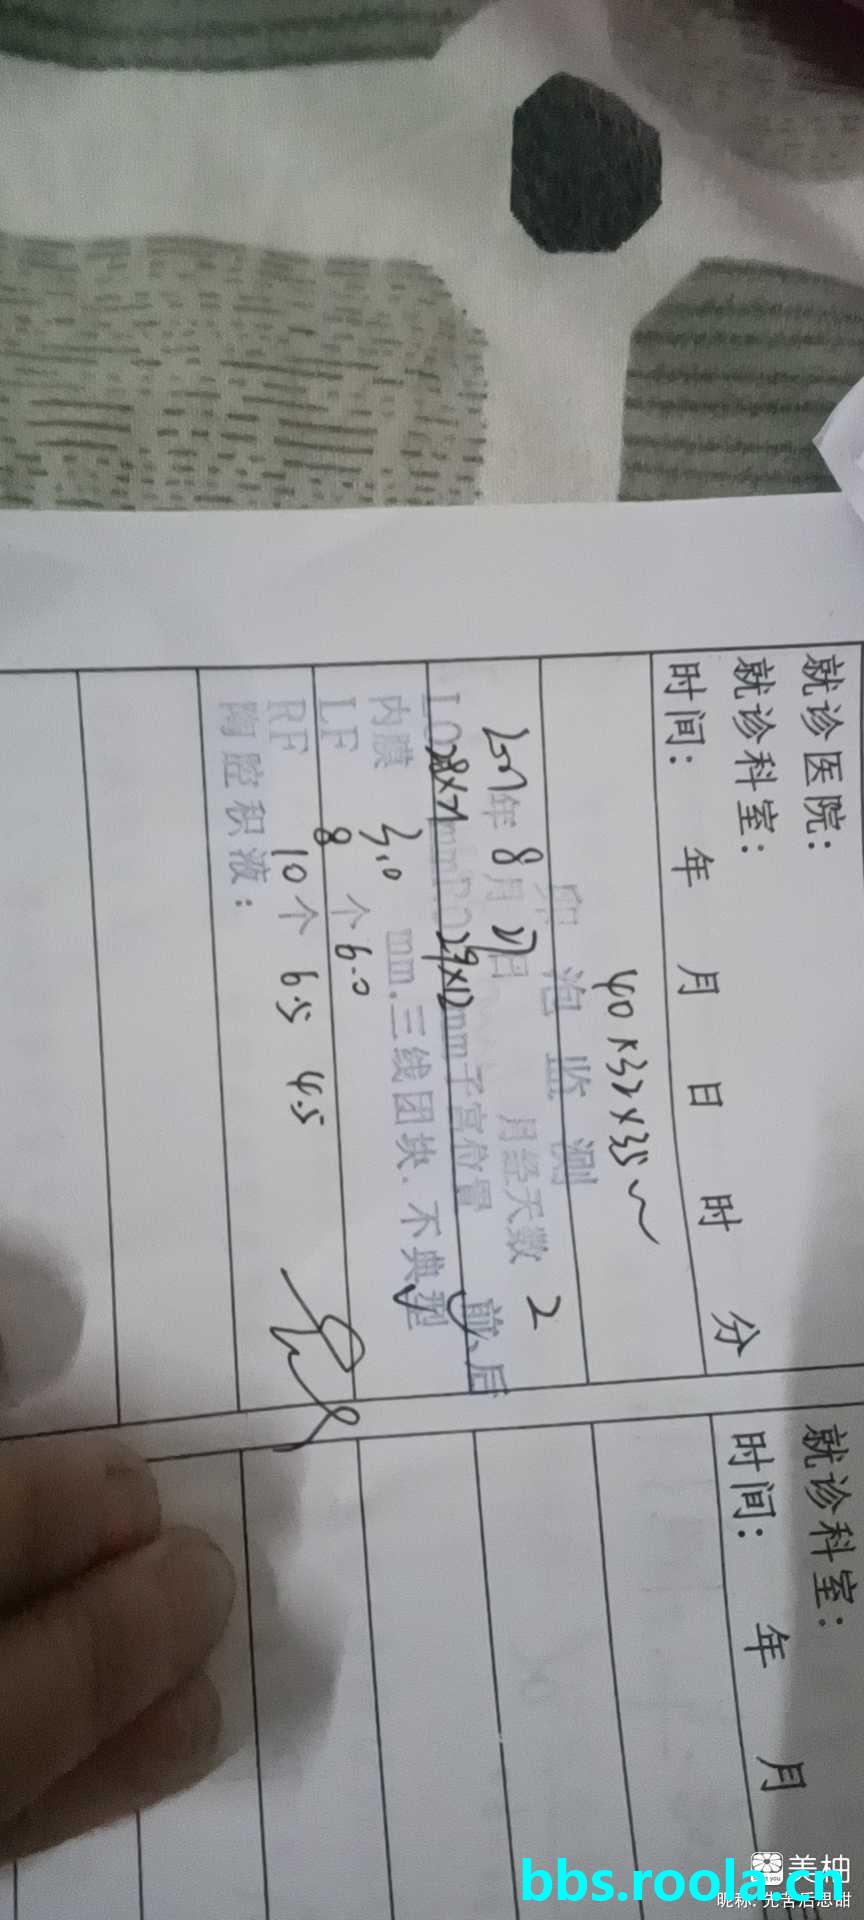 就诊医院：
就诊科室：
时间： 年 月 日 时 分
40×32×35
卵泡监测
年 8 月 日 月经天数 2
LO 28×21 mm RO 29×12 mm 子宫位置 前、后
内膜 3.0 mm.三线团块.不典型
LF 8 个 6.0
RF 10 个 6.5 4.5
陶腔积液：
就诊科室：
时间： 年 月
美柚
昵称: 先苦后思甜
bbs.roola.cn